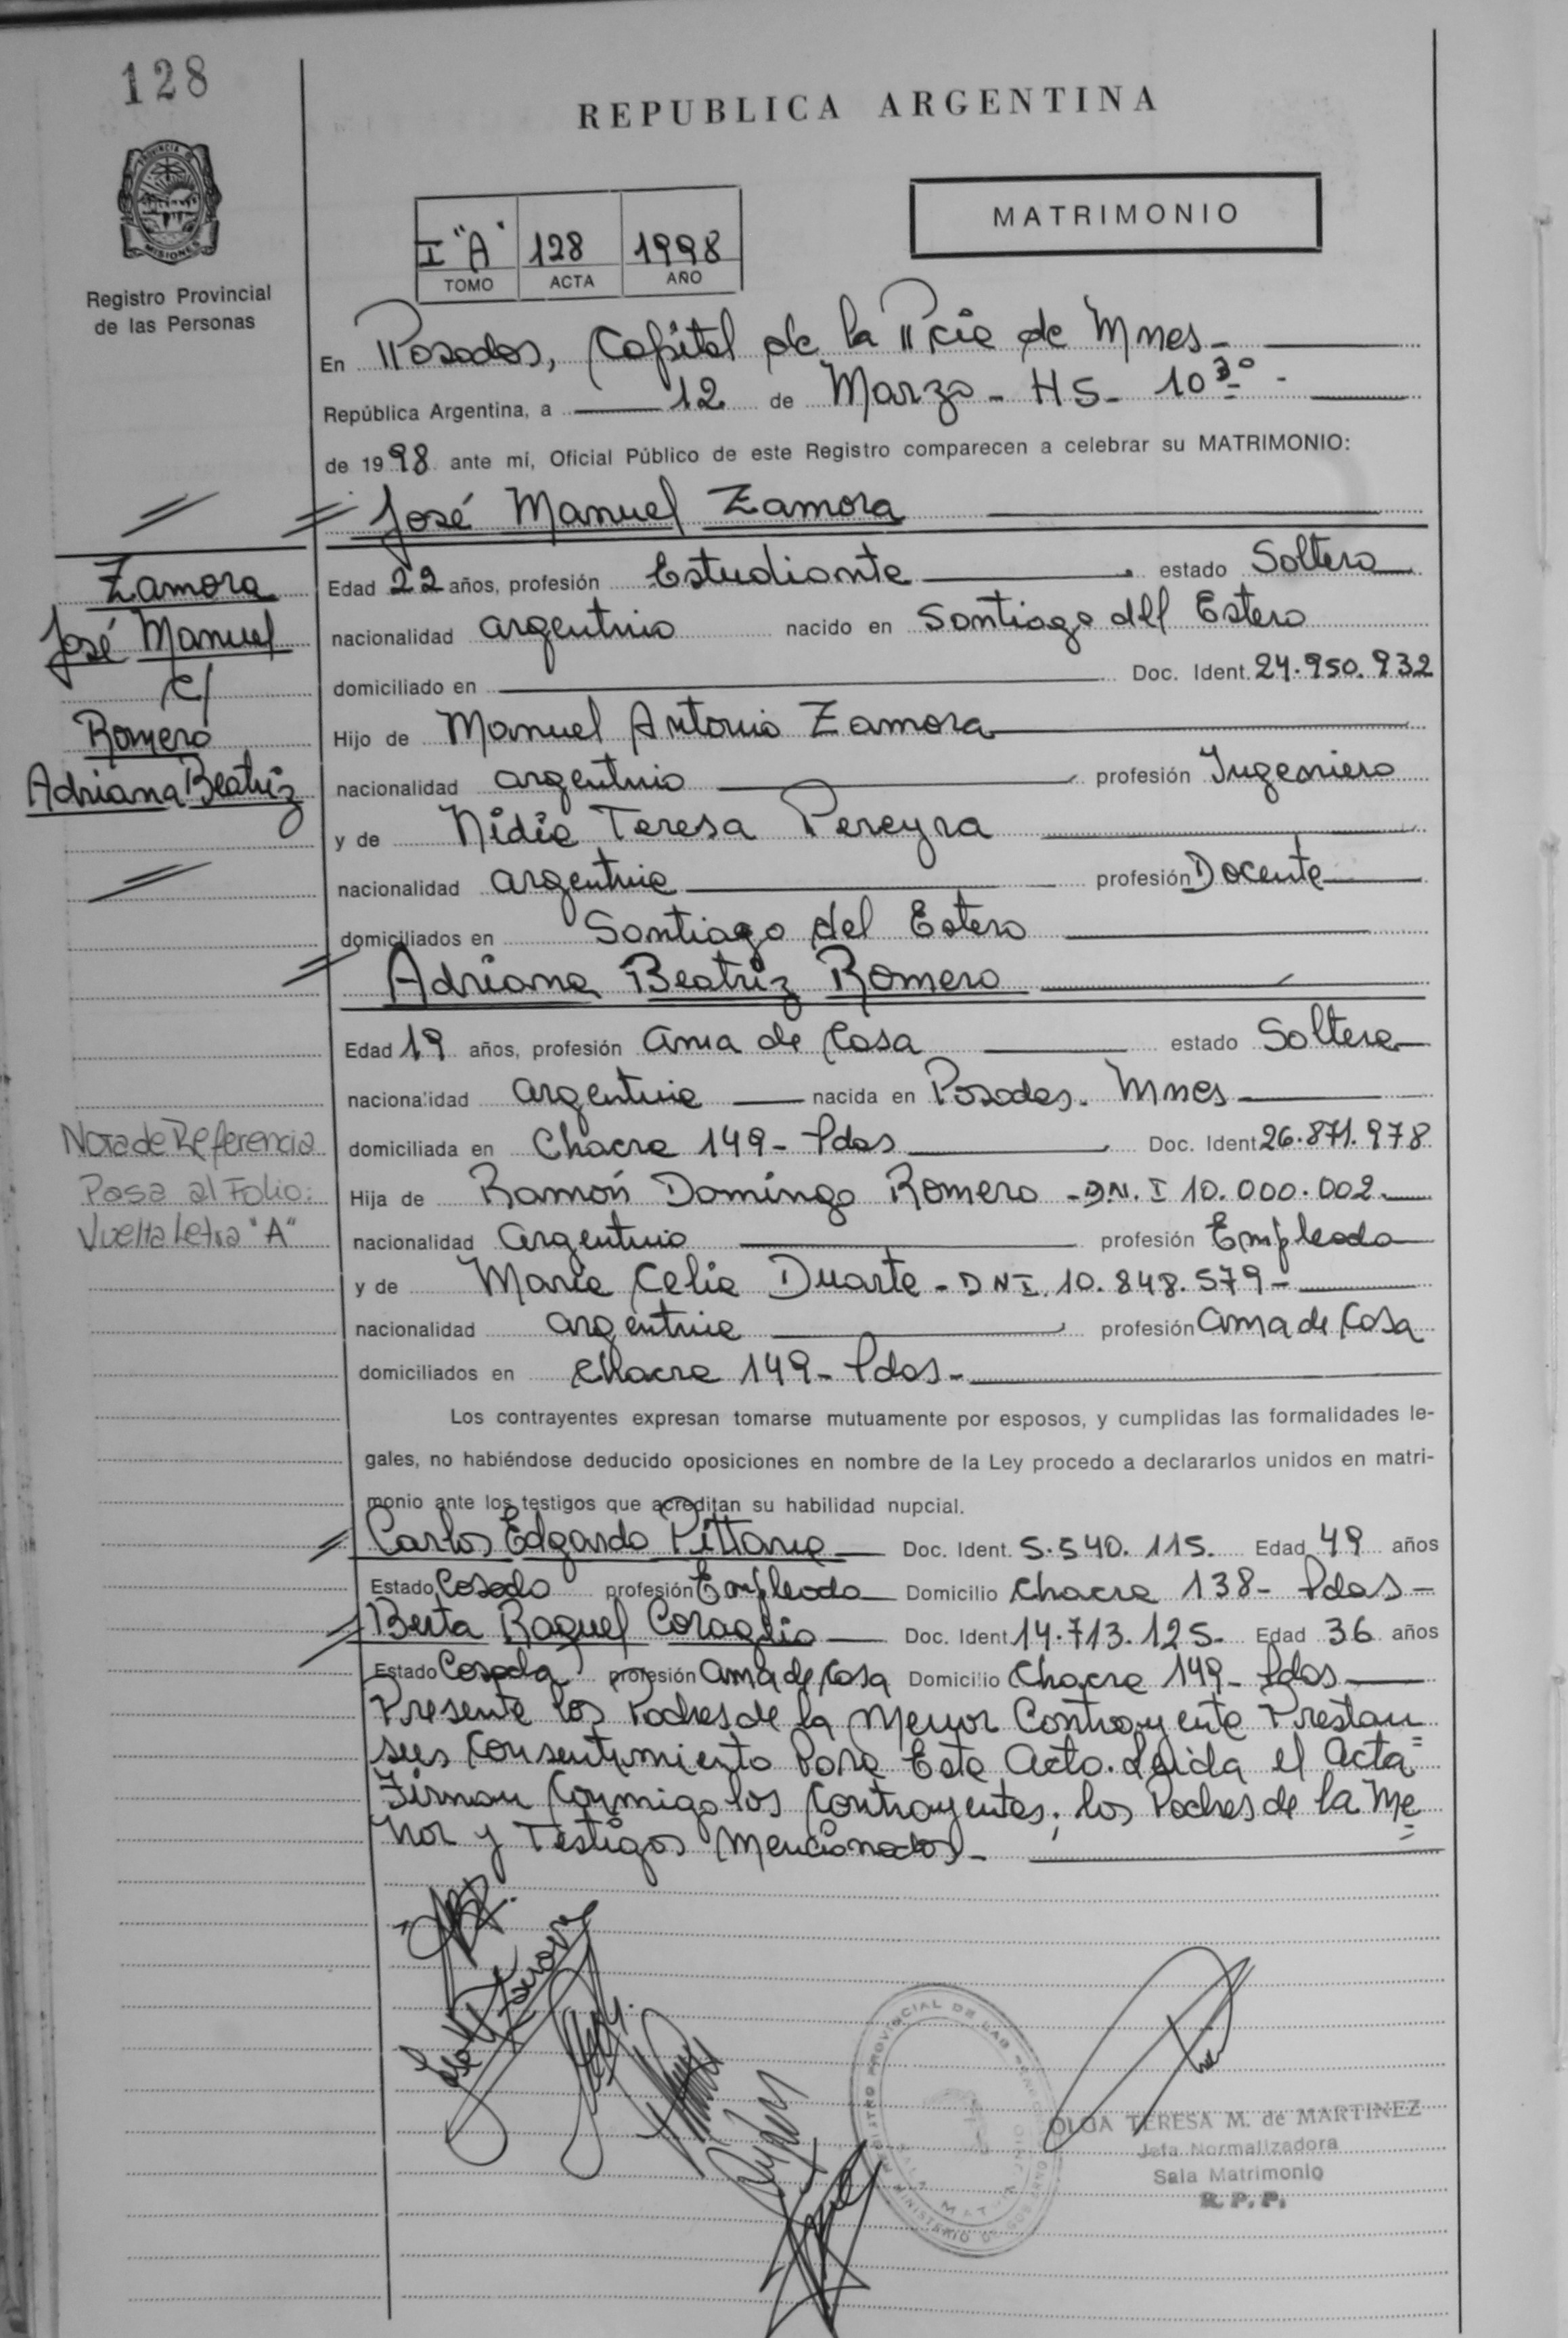 128
REPUBLICA ARGENTINA
PROVINCIA DE
MISIONES
Registro Provincial
de las Personas
MATRIMONIO
I "A" 128 1998
TOMO ACTA AÑO
En Posadas, Capital de la Pcia de Mnes-
República Argentina, a 12 de Marzo - HS- 10 30 -
de 1998 ante mí, Oficial Público de este Registro comparecen a celebrar su MATRIMONIO:
José Manuel Zamora
Zamora
José Manuel
c/
Romero
Adriana Beatriz
Edad 22 años, profesión Estudiante estado Soltero
nacionalidad argentino nacido en Santiago del Estero
domiciliado en Doc. Ident. 24.950.932
Hijo de Manuel Antonio Zamora
nacionalidad argentino profesión Ingeniero
y de Nidia Teresa Pereyra
nacionalidad argentina profesión Docente
domiciliados en Santiago del Estero
Adriana Beatriz Romero
Edad 19 años, profesión ama de Casa estado Soltera
nacionalidad argentina nacida en Posadas. Mnes
domiciliada en Chacra 149- Pdas Doc. Ident 26.871.978
Hija de Ramón Domingo Romero - D.N.I 10.000.002-
nacionalidad argentino profesión Empleado
y de María Celia Duarte - DNI. 10.848.579-
nacionalidad argentina profesión ama de Casa
domiciliados en Chacra 149- Pdas-
Nota de Referencia
Pasa al Folio:
Vuelta Letra "A"
Los contrayentes expresan tomarse mutuamente por esposos, y cumplidas las formalidades le-
gales, no habiéndose deducido oposiciones en nombre de la Ley procedo a declararlos unidos en matri-
monio ante los testigos que acreditan su habilidad nupcial.
Carlos Edgardo Pittana Doc. Ident. 5.540.115. Edad 49 años
Estado Casado profesión Empleado Domicilio Chacra 138- Pdas-
Berta Raquel Coraglio Doc. Ident 14.713.125- Edad 36 años
Estado Casada profesión ama de Casa Domicilio Chacra 149- Pdas
Presente los Padres de la menor Contrayente Prestan
sus Consentimiento Para Este Acto. Leida el acta
Firman Conmigo los Contrayentes; los Padres de la Me=
nor y Testigos Mencionados-
REGISTRO PROVINCIAL DE LAS PERSONAS
SALA MATRIMONIO
MINISTERIO DE GOBIERNO
OLGA TERESA M. de MARTINEZ
Jefa Normalizadora
Sala Matrimonio
R. P. P.